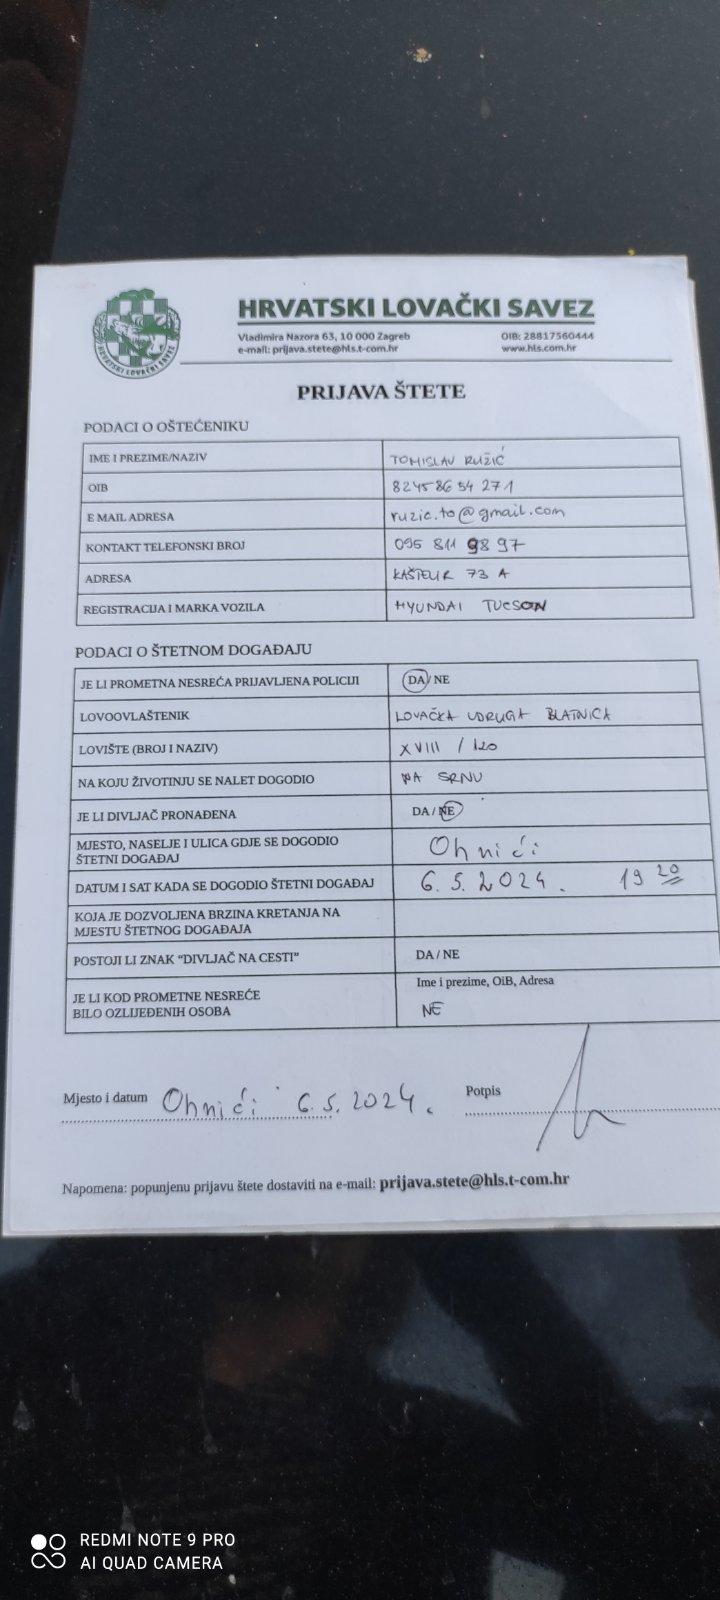 HRVATSKI LOVAČKI SAVEZ
Vladimira Nazora 63, 10 000 Zagreb OIB: 28817560444
e-mail: prijava.stete@hls.t-com.hr www.hls.com.hr
HRVATSKI LOVAČKI SAVEZ
PRIJAVA ŠTETE
PODACI O OŠTEĆENIKU
IME I PREZIME/NAZIV TOMISLAV RUŽIĆ
OIB 82458654271
E MAIL ADRESA ruzic.to@gmail.com
KONTAKT TELEFONSKI BROJ 095 811 9897
ADRESA KAŠTELIR 73 A
REGISTRACIJA I MARKA VOZILA HYUNDAI TUCSON
PODACI O ŠTETNOM DOGAĐAJU
JE LI PROMETNA NESREĆA PRIJAVLJENA POLICIJI DA/NE
LOVOOVLAŠTENIK LOVAČKA UDRUGA BLATNICA
LOVIŠTE (BROJ I NAZIV) XVIII / 120
NA KOJU ŽIVOTINJU SE NALET DOGODIO NA SRNU
JE LI DIVLJAČ PRONAĐENA DA/NE
MJESTO, NASELJE I ULICA GDJE SE DOGODIO
ŠTETNI DOGAĐAJ Ohnići
DATUM I SAT KADA SE DOGODIO ŠTETNI DOGAĐAJ 6.5.2024. 19 20
KOJA JE DOZVOLJENA BRZINA KRETANJA NA
MJESTU ŠTETNOG DOGAĐAJA
POSTOJI LI ZNAK “DIVLJAČ NA CESTI” DA/NE
JE LI KOD PROMETNE NESREĆE Ime i prezime, OiB, Adresa
BILO OZLIJEĐENIH OSOBA NE
Mjesto i datum Ohnići 6.5.2024. Potpis
Napomena: popunjenu prijavu štete dostaviti na e-mail: prijava.stete@hls.t-com.hr
REDMI NOTE 9 PRO
AI QUAD CAMERA